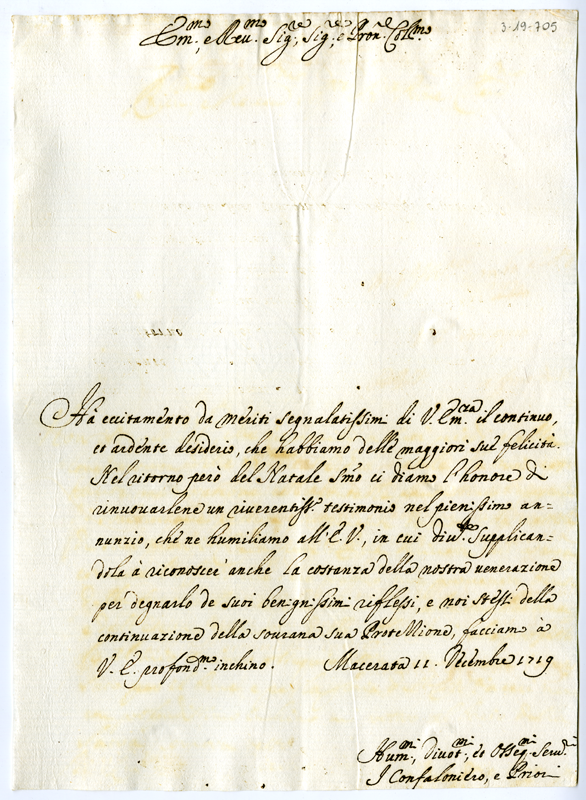 3-19-705
Em.mo, e Reu.mo Sig.re, Sig.re, e Pron.e Coll.mo
Hà eccitamento da meriti segnalatissimi di V. Em.cza il continuo,
et ardente desiderio, che habbiamo delle maggiori sue felicità.
Nel ritorno però del Natale Smo ci diamo l'honore di
rinuouarlene un riuerentiss.o testimonio nel pienissimo an=
nunzio, che ne humiliamo all'E. V., in cui Supplican=
dola à riconoscer' anche la costanza della nostra uenerazione
per degnarlo de suoi benignissimi riflessi, e noi stessi della
continuazione della sourana sua Protettione, facciamo à
V. E. profond.mo inchino. Macerata 11. Decembre 1719
Hum.mi, Diuot.mi, et Osseq.mi Seru.ri
Il Confaloniero, e Priori